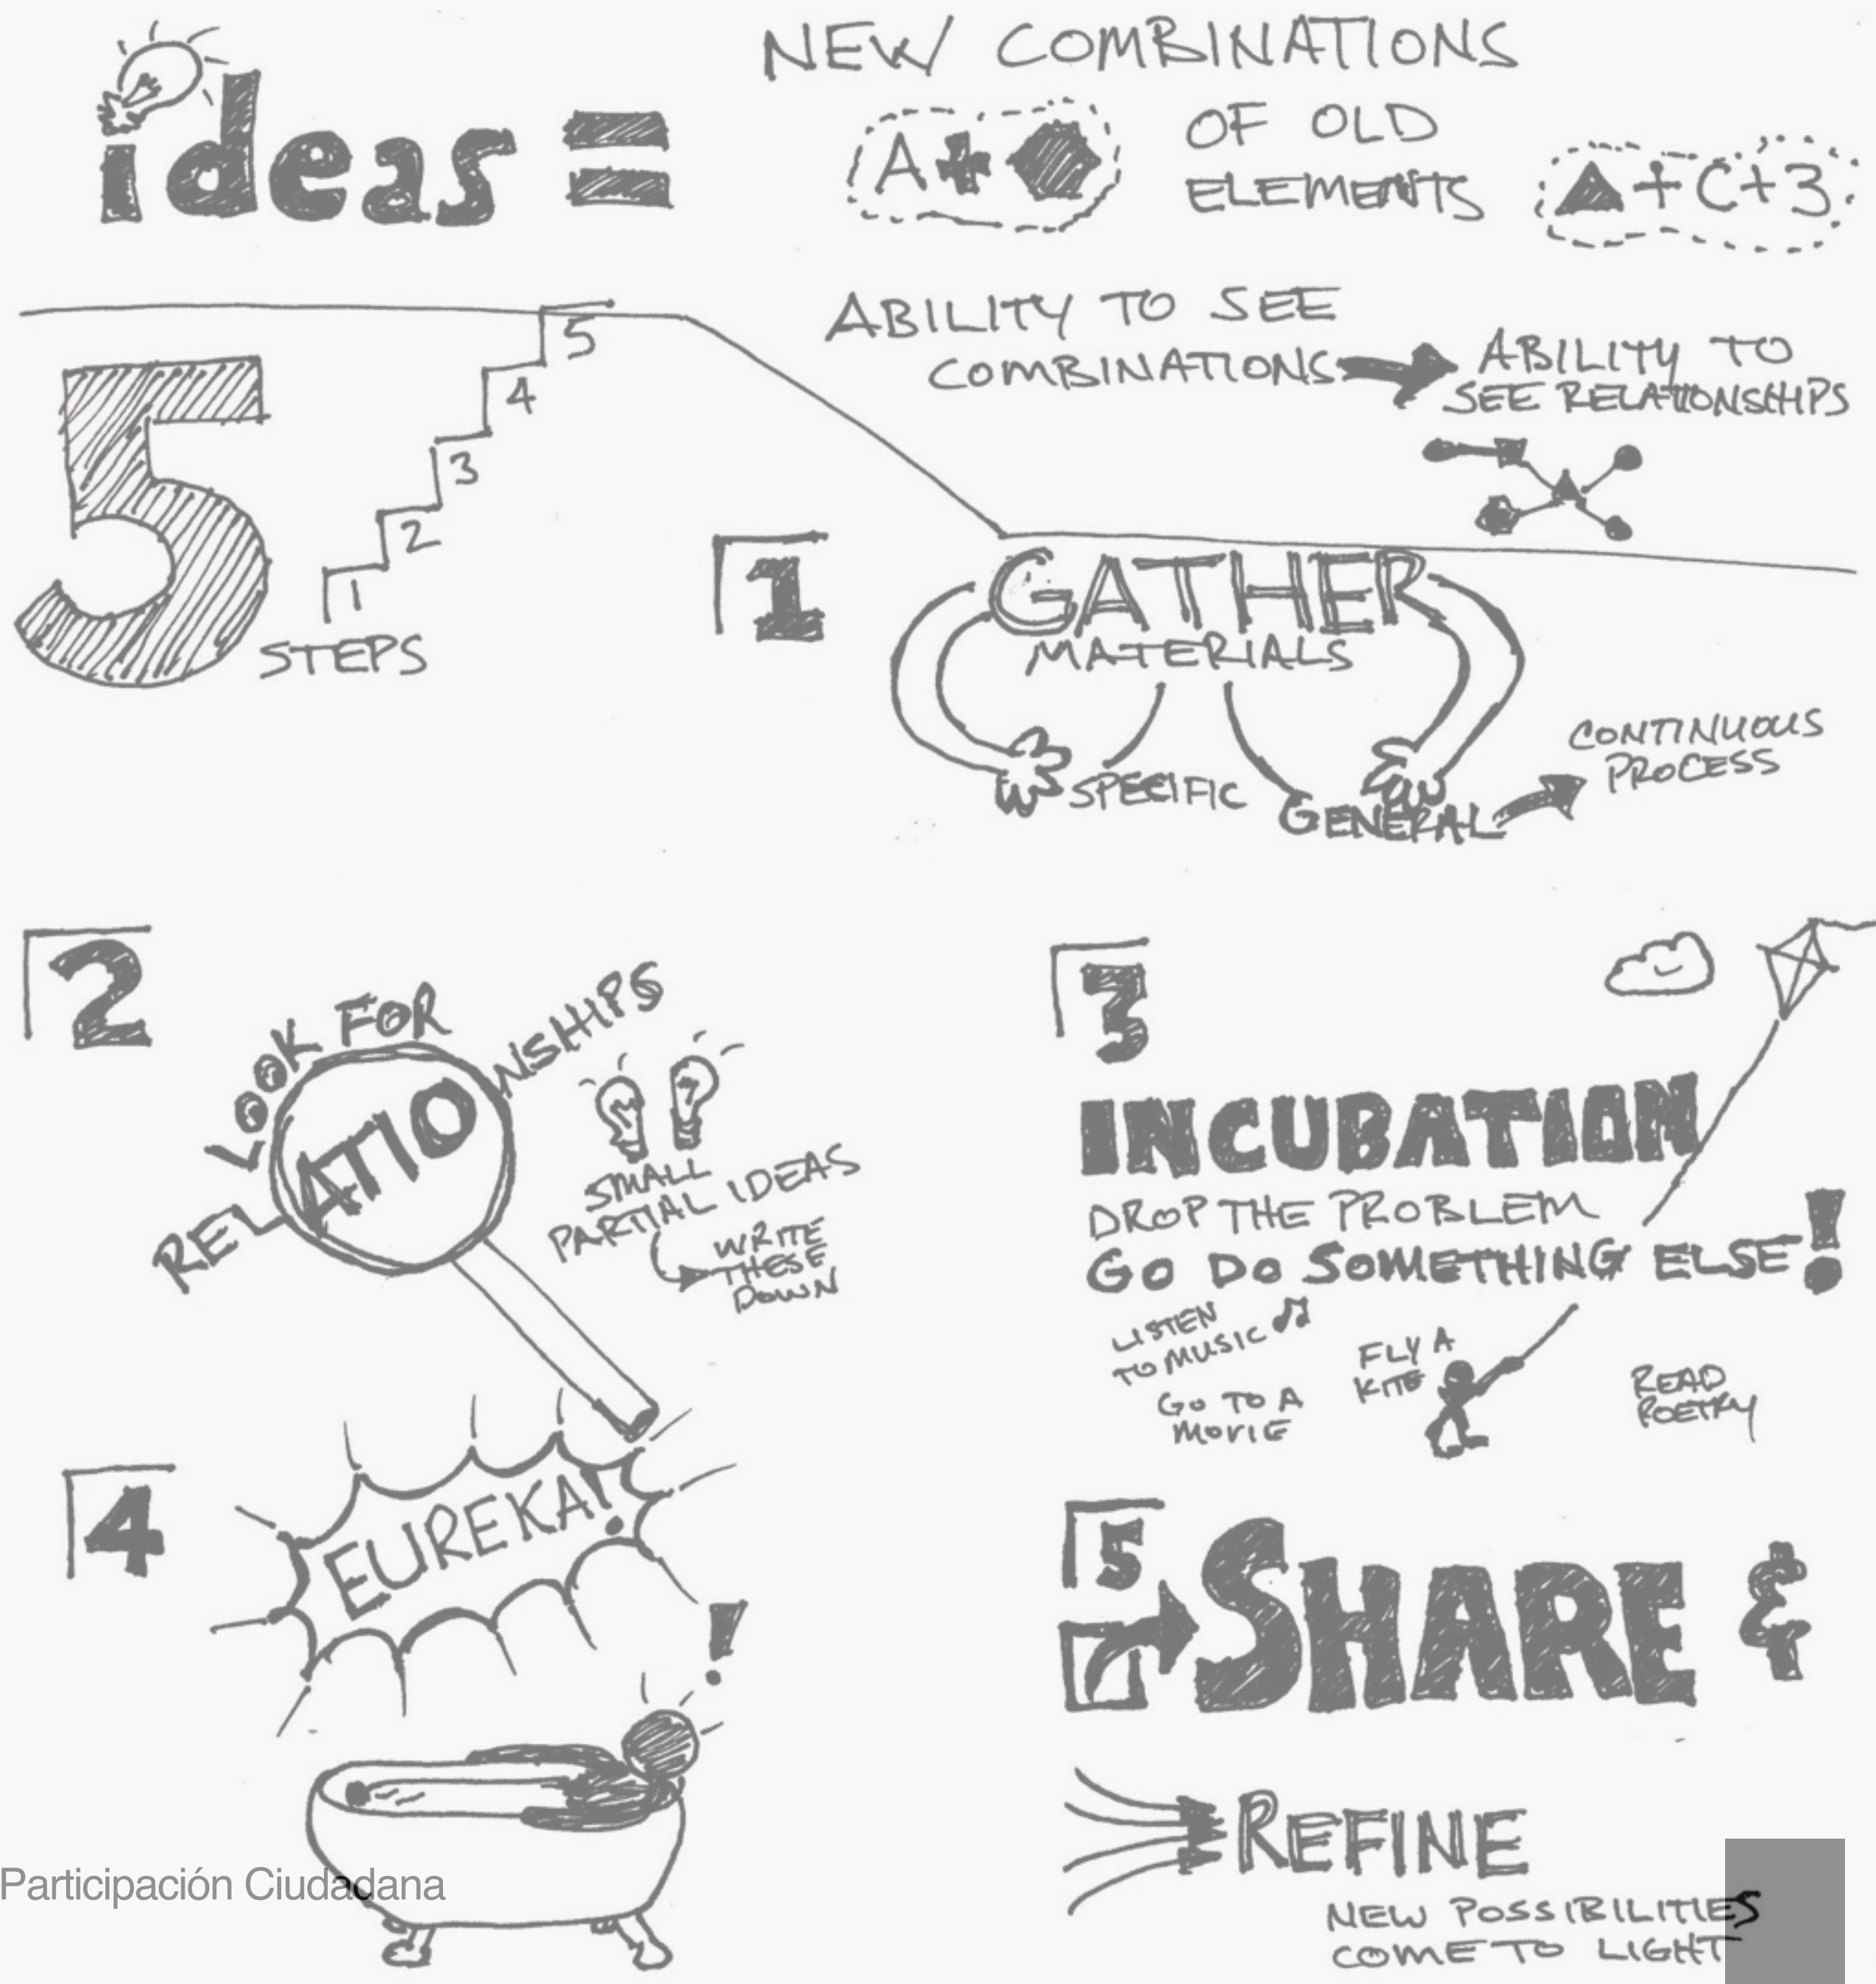 ideas =
NEW COMBINATIONS
OF OLD
ELEMENTS
A+
+C+3
ABILITY TO SEE
COMBINATIONS
ABILITY TO
SEE RELATIONSHIPS
5
STEPS
1
2
3
4
5
1
GATHER
MATERIALS
SPECIFIC
GENERAL
CONTINUOUS
PROCESS
2
LOOK FOR
RELATIONSHIPS
SMALL
PARTIAL IDEAS
WRITE
THESE
DOWN
3
INCUBATION
DROP THE PROBLEM
GO DO SOMETHING ELSE!
LISTEN
TO MUSIC
GO TO A
MOVIE
FLY A
KITE
READ
POETRY
4
EUREKA!
!
5
SHARE &
REFINE
NEW POSSIBILITIES
COME TO LIGHT
Participación Ciudadana